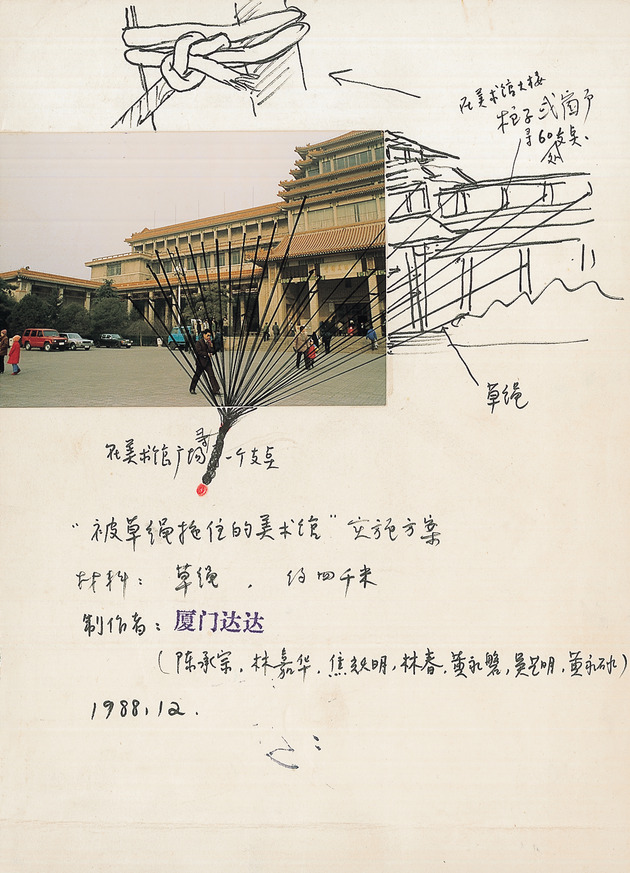 在美术馆大楼
柱子或窗户
寻60支点.
草绳
在美术馆广场寻一个支点
"被草绳拖住的美术馆" 实施方案
材料: 草绳 , 约四千米
制作者: 厦门达达
(陈承宗, 林嘉华, 焦耀明, 林春, 黄永磐, 吴艺明, 黄永砯)
1988.12.